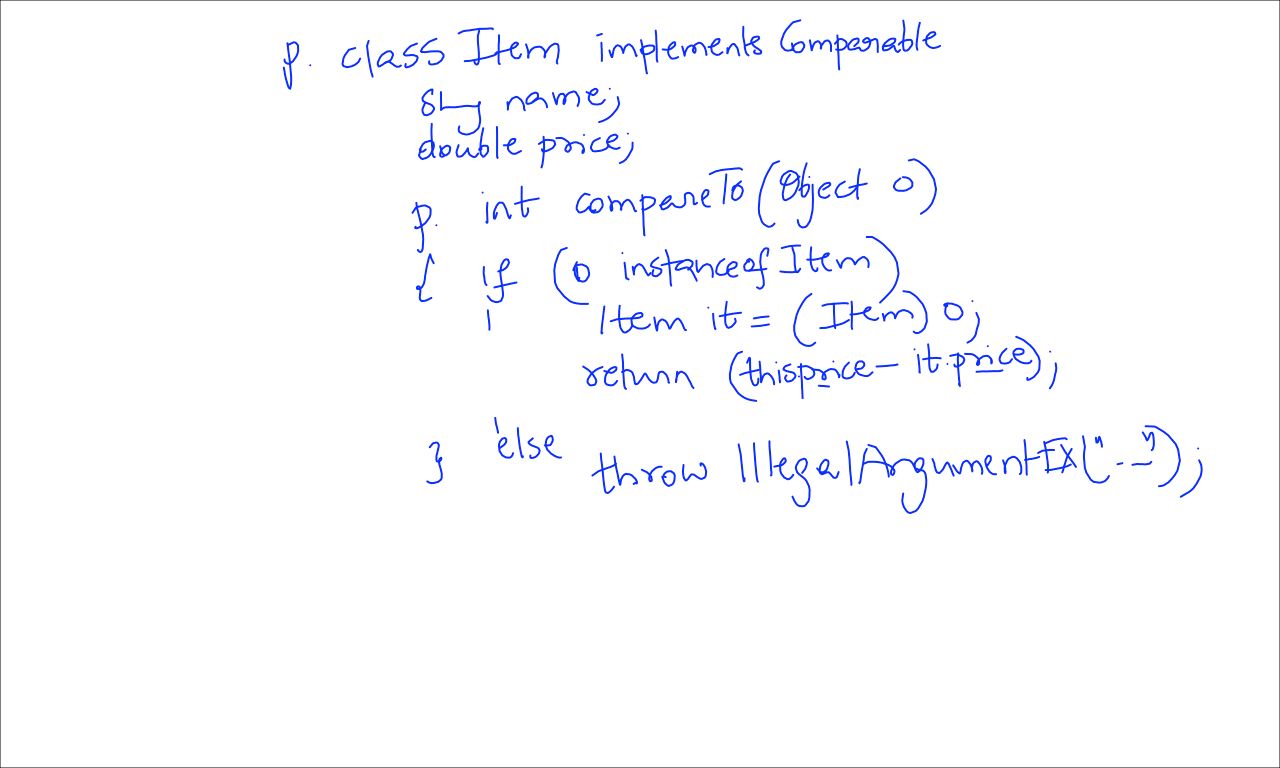 p. class Item implements Comparable
String name;
double price;
p. int compareTo (Object o)
{ if (o instanceof Item)
Item it = (Item) o;
return (thisprice - it.price);
} else
throw IllegalArgumentEX("--");